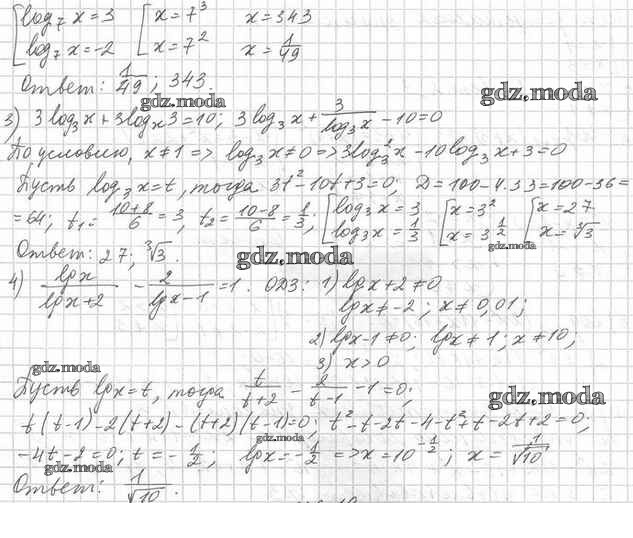 [log₇ x = 3 [x = 7³ x = 343
[log₇ x = -2 [x = 7² x = 1/49
Ответ: 1/49; 343.
gdz.moda gdz.moda
3) 3 log₃ x + 3 logₓ 3 = 10; 3 log₃ x + 3/log₃ x - 10 = 0
По условию, x ≠ 1 => log₃ x ≠ 0 => 3 log₃² x - 10 log₃ x + 3 = 0
Пусть log₃ x = t, тогда 3t² - 10t + 3 = 0; D = 100 - 4·3·3 = 100 - 36 =
= 64; t₁ = (10+8)/6 = 3, t₂ = (10-8)/6 = 1/3; [log₃ x = 3 [x = 3² [x = 27
[log₃ x = 1/3 [x = 3^(1/2) [x = ∛3
gdz.moda gdz.moda
Ответ: 27; ∛3.
4) lg x/(lg x + 2) - 2/(lg x - 1) = 1. ОДЗ: 1) lg x + 2 ≠ 0
lg x ≠ -2; x ≠ 0,01;
2) lg x - 1 ≠ 0; lg x ≠ 1; x ≠ 10;
3) x > 0
gdz.moda
Пусть lg x = t, тогда t/(t+2) - 2/(t-1) - 1 = 0;
gdz.moda
t(t-1) - 2(t+2) - (t+2)(t-1) = 0; t² - t - 2t - 4 - t² + t - 2t + 2 = 0;
gdz.moda
-4t - 2 = 0; t = -1/2; lg x = -1/2 => x = 10^(-1/2); x = 1/√10
gdz.moda
Ответ: 1/√10.